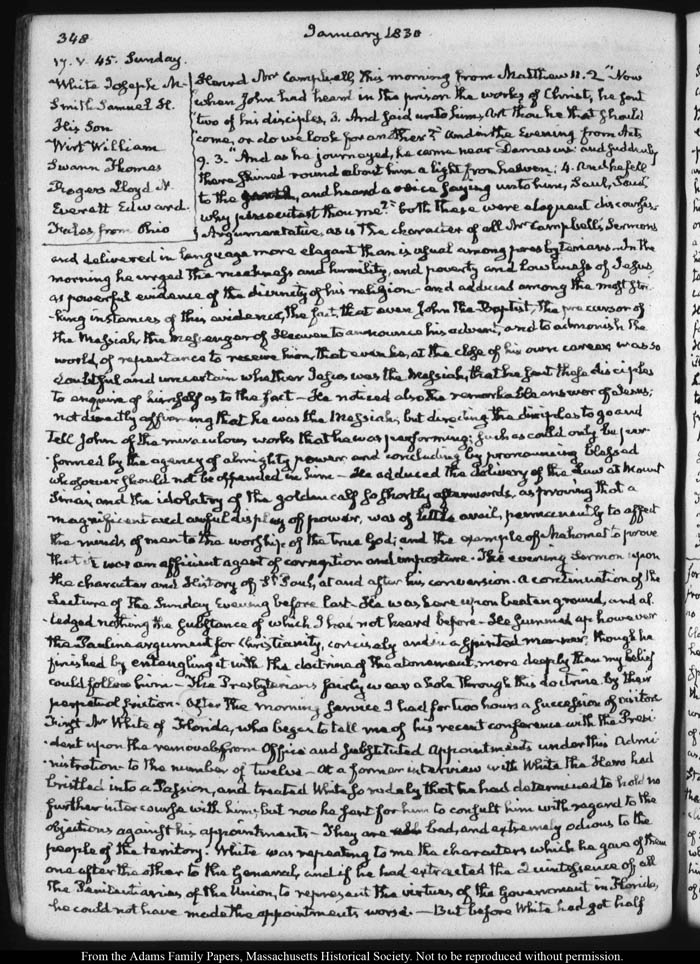 348
January 1830
17. V. 45. Sunday.
White Joseph M.
Smith Samuel H.
His Son
Wirt William
Swann Thomas
Rogers Lloyd N.
Everett Edward.
from Ohio
Heard Mr Campbell, this morning from Matthew 11. 2 "Now
when John had heard in the prison the works of Christ, he sent
two of his disciples, 3. And said unto him, Art thou he that should
come, or do we look for another?" and in the Evening from Acts
9. 3. "And as he journeyed, he came near Damascus: and suddenly
there shined round about him a light from heaven: 4. And he fell
to the earth, and heard a voice saying unto him, Saul, Saul,
why persecutest thou me?" both these were eloquent discourses.
Argumentative, as is the character of all Mr Campbell's Sermons
and delivered in language more elegant than is usual among presbyterians. In the
morning he urged the meekness and humility, and poverty and lowliness of Jesus,
as powerful evidence of the divinity of his religion - and adduced among the most stri-
-king instances of this evidence, the fact, that even John the Baptist, the precursor of
the Messiah, the Messenger of Heaven to announce his advent, and to admonish the
world, of repentance to receive him, that even he, at the close of his own career, was so
doubtful and uncertain whether Jesus was the Messiah, that he sent those disciples
to enquire of himself as to the fact - He noticed also the remarkable answer of Jesus;
not directly affirming that he was the Messiah, but directing the disciples to go and
tell John of the miraculous works that he was performing; such as could only be per-
-formed by the agency of almighty power and concluding by pronouncing blessed
whosoever should not be offended in him - He adduced the delivery of the Law at Mount
Sinai, and the idolatry of the golden calf so shortly afterwards, as proving that a
magnificent and awful display of power, was of little avail, permanently to affect
the minds of men to the worship of the true God; and the example of Mahomet to prove
that it was an efficient agent of corruption and imposture. The evening Sermon upon
the character and History of St Paul, at and after his conversion. a continuation of the
Lecture of the Sunday Evening before last - He was here upon beaten ground, and al-
-ledged nothing the substance of which I had not heard before - He summed up however
the Pauline argument for Christianity, concisely and in a spirited manner, though he
finished by entangling it with the doctrine of the atonement, more deeply than my belief
could follow him - The Presbyterians fairly wear a hole through this doctrine by their
perpetual friction. After the morning service I had for two hours a succession of visitors
First Mr White of Florida, who began to tell me of his recent conference with the Presi-
-dent upon the removals from Office and substituted Appointments under this Admi-
-nistration to the number of twelve - At a former interview with White the Hero had
bristled into a Passion, and treated White so rudely that he had determined to hold no
further intercourse with him; but now he sent for him to consult him with regard to the
objections against his appointments - They are bad, and extremely odious to the
people of the territory. White was repeating to me the characters which he gave of them
one after the other to the General, and if he had extracted the Quintessence of all
the Penitentiaries of the Union, to represent the virtues of the Government in Florida,
he could not have made the appointments worse. — But before White had got half
From the Adams Family Papers, Massachusetts Historical Society. Not to be reproduced without permission.